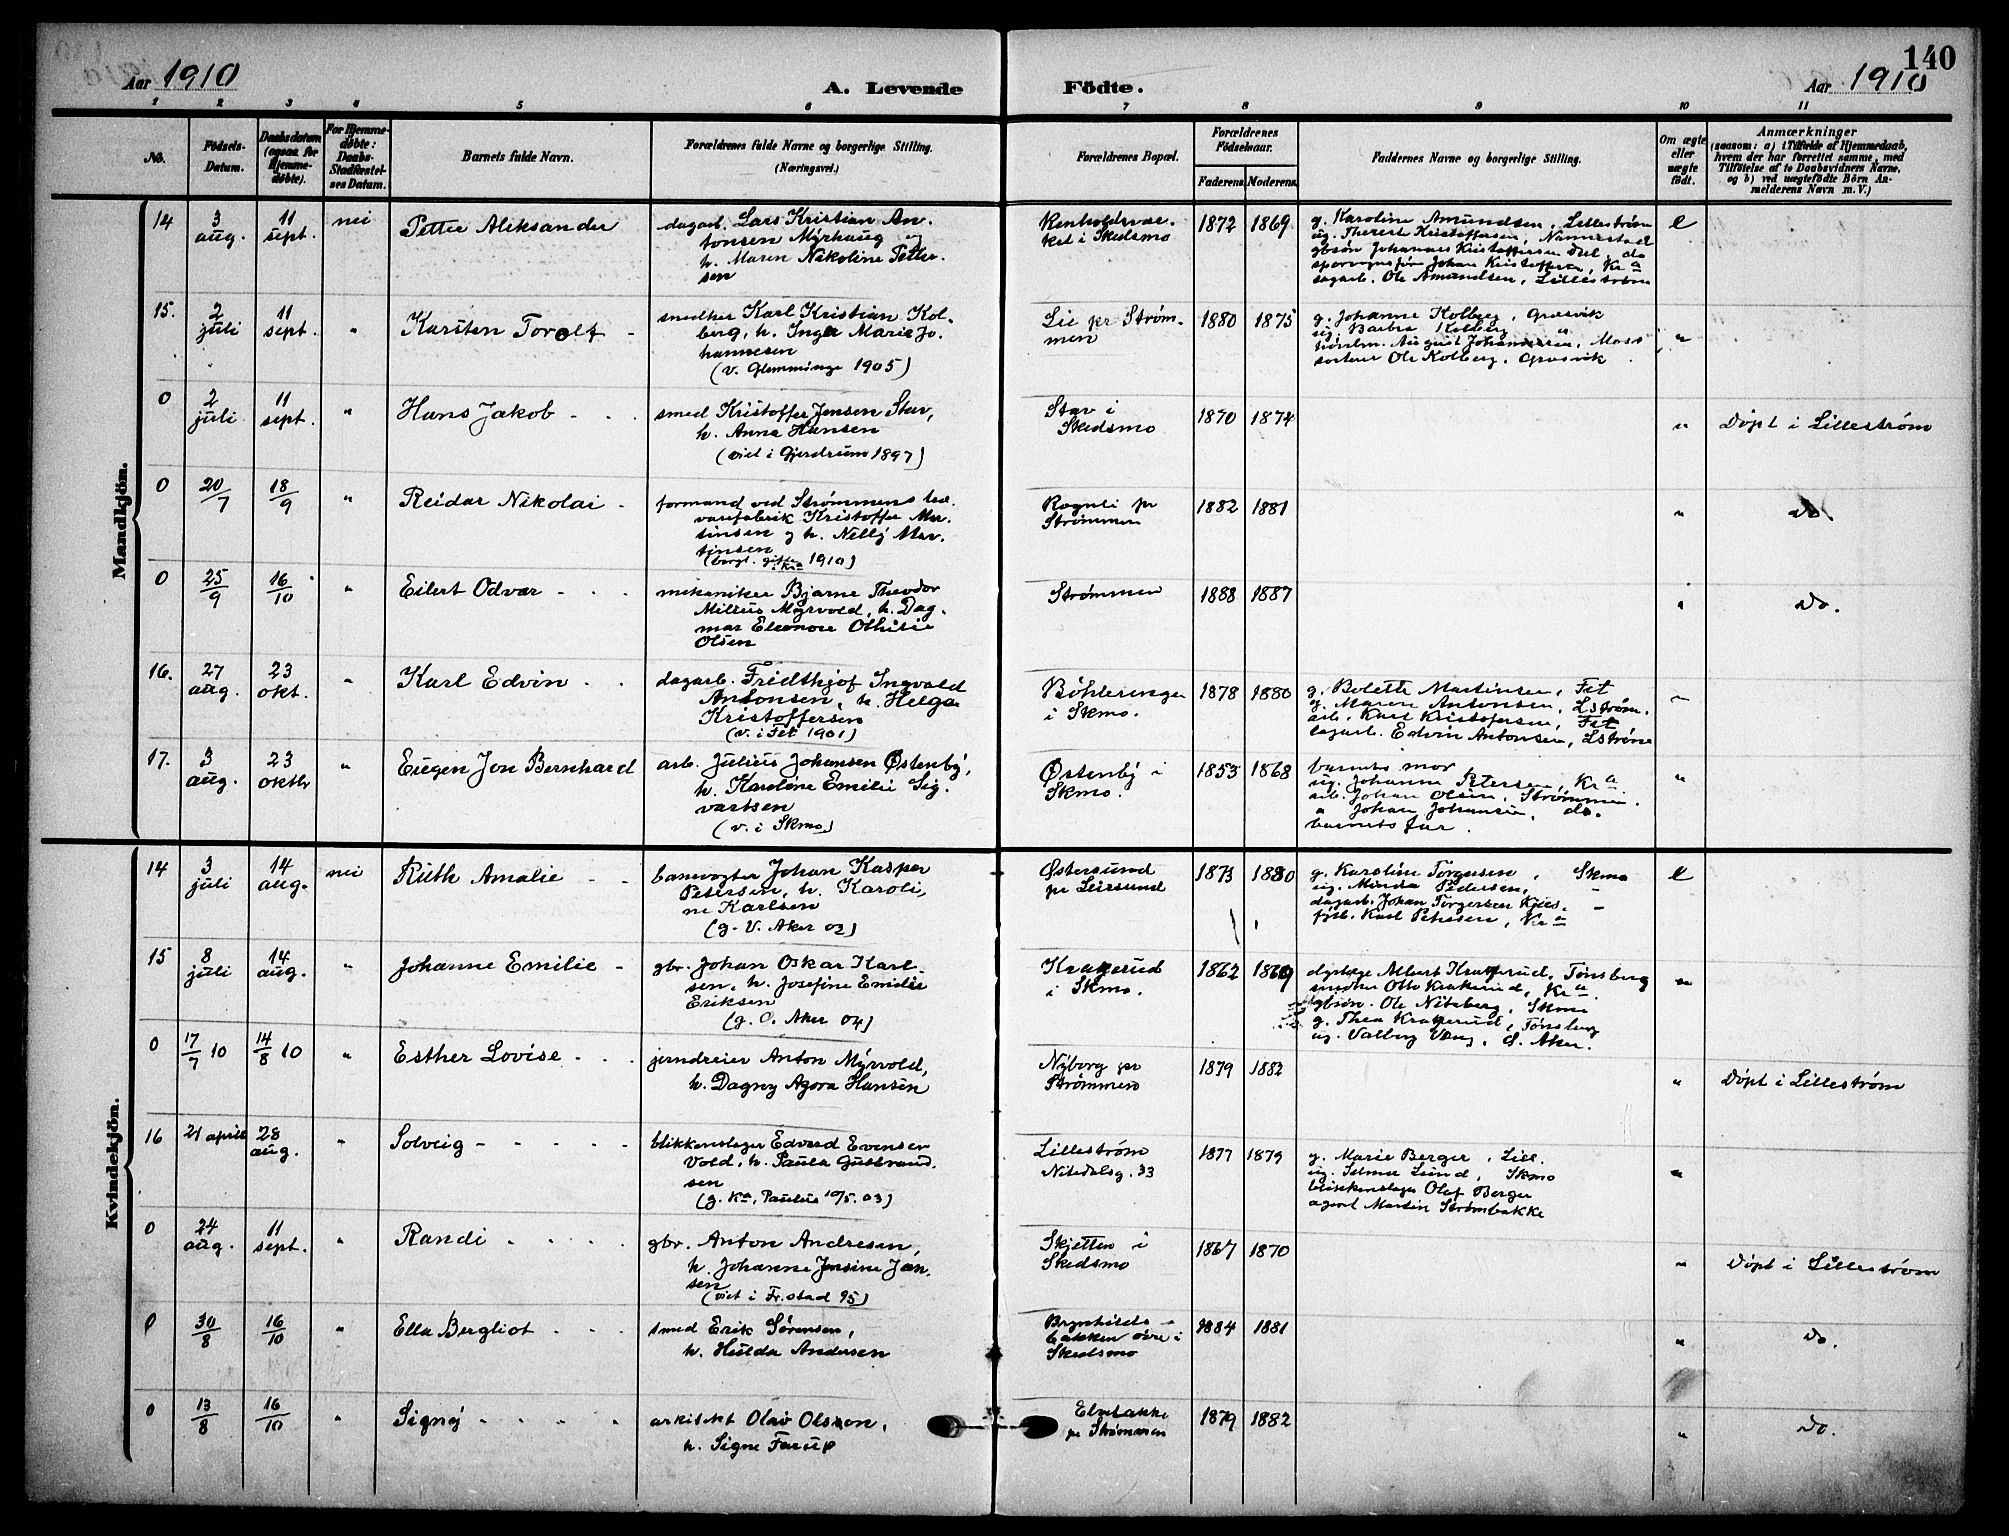 140
Aar 1910
A. Levende Födte.
Aar 1910
1 2 3 4 5 6 7 8 9 10 11
No.
Födsels-
Datum.
Daabsdatum
(ogsaa for
Hjemme-
döbte).
For Hjemme-
döbte:
Daabs-
Stadfæstel-
ses Datum.
Barnets fulde Navn.
Forældrenes fulde Navne og borgerlige Stilling.
(Næringsvei.)
Forældrenes Bopæl.
Forældrenes
Födselsaar.
Faderens. Moderens.
Faddernes Navne og borgerlige Stilling.
Om ægte
eller
uægte
födt.
Anmærkninger
(saasom: a) i Tilfælde af Hjemmedaab,
hvem der har forrettet samme, med
Tilföielse af to Daabsvidners Navne,
og b) ved uægtefödte Börn An-
melderens Navn m. V.)
Mandkjön.
14
3
aug.
11
sept.
nei
Petter Aleksander
dagarb. Lars Kristian An-
tonsen Myrhaug og
h. Maren Nikoline Petter-
sen
Renholdsver-
ket i Skedsmo
1872 1869
g. Karoline Amundsen, Lillestrøm
ug. Therese Kristoffersen, Nannestad
gbsøn Johannes Kristoffersen do
sporvognsfør. Johan Kristoffersen, Kra
dagarb. Ole Amundsen, Lillestrøm
e
15.
2
juli
11
sept.
"
Karsten Torolf -
smedker Karl Kristian Kol-
berg, h. Inga Marie Jo-
hannesen
(v. Glemminge 1905)
Lie pr Strøm-
men
1880 1875
g. Johanne Kolberg, Græsvik
ug. Barbra Kolberg "
August Johannesen, Moss
Ole Kolberg, Græsvik
"
0
2
juli
11
sept.
"
Hans Jakob - -
smed Kristoffer Jensen Stav,
h. Anna Hansen
(viet i Gjerdrum 1897)
Stav i
Skedsmo
1870 1874
"
Døpt i Lillestrøm
0
20/7
18/9
"
Reidar Nikolai -
formand ved Strømmens træ-
varefabrik Kristoffer Mar-
tinsen og h. Nelly Mar-
tinsen
(borgl. gifte Kra 1910)
Rognli pr
Strømmen
1882 1881
"
do.
0
25/9
16/10
"
Eilert Odvar - -
mekaniker Bjarne Theodor
Milius Myrvold, h. Dag-
mar Eleonore Othilie
Olsen
Strømmen
1888 1887
"
do.
16.
27
aug.
23
okt.
"
Karl Edvin - -
dagarb. Fridthjof Ingvald
Antonsen, h. Helga
Kristoffersen
(v. i Fet 1901)
Bøhleringen
i Skmo.
1878 1880
g. Bolette Martinsen, Fet
g. Maren Antonsen, Lstrøm.
arb. Karl Kristoffersen, Fet
dagarb. Edvin Antonsen, Lstrøm
"
17.
3
aug.
23
oktbr
"
Eugen Jon Bernhard
arb. Julius Johansen Østenby,
h. Karoline Emilie Sig-
vartsen
(v. i Skmo)
Østenby i
Skmo.
1853 1868
barnets mor
ug. Johanne Petersen, Kra
arb. Johan Olsen, Strømmen.
" Johan Johansen, do.
barnets far.
"
Kvindekjön.
14
3
juli
14
aug.
nei
Ruth Amalie - -
banevogter Johan Kasper
Petersen, h. Karoli-
ne Karlsen
(g. V. Aker 02)
Østersund
pr Leirsund
1873 1880
g. Karoline Torgersen, Skmo
ug. Minda Pedersen, -
dagarb. Johan Torgersen -
Karl Petersen, Kra
e
15
8
juli
14
aug.
"
Johanne Emilie -
gbr. Johan Oskar Karl-
sen, h. Josefine Emilie
Eriksen
(g. Ø. Aker 04)
Krakerud
i Skmo.
1862 1869
Albert Krakerud, Tønsberg
smedm Otto Krakerud, Kra.
gbsøn. Ole Niteberg, Skmo
g. Thea Krakerud, Tønsberg
ug. Valborg Vang, Ø. Aker.
"
0
17/7 10
14/8 10
"
Esther Lovise - -
jerndreier Anton Myrvold,
h. Dagny Agora Hansen
Nyborg pr
Strømmen
1879 1882
"
Døpt i Lillestrøm
16
21 april
28
aug.
"
Solveig - - - -
blikkenslager Edvard Evensen
Vold, h. Paula Gulbrand-
sen
(g. Kra, Paulus 10/5. 03)
Lillestrøm
Nitedalsg. 33
1877 1879
g. Marie Berger, Lill.
ug. Selma Lund, Skmo
blikkenslager Olaf Berger
agent Martin Strømbakke
"
0
24
aug.
11
sept.
"
Randi - - - -
gbr. Anton Andresen,
h. Johanne Jensine Jan-
sen
(viet i Fr.stad 95)
Skjetten i
Skedsmo
1867 1870
"
Døpt i Lillestrøm
0
30/8
16/10
"
Ella Bergliot - -
smed Erik Sørensen,
h. Hulda Andersen
Brynhilds-
bakken øvre i
Skedsmo
1884 1881
"
do.
0
13/8
16/10
"
Signy - - - -
arkitekt Olav Olsson,
h. Signe Farup
Elvebakke
pr Strømmen
1879 1882
"
do.